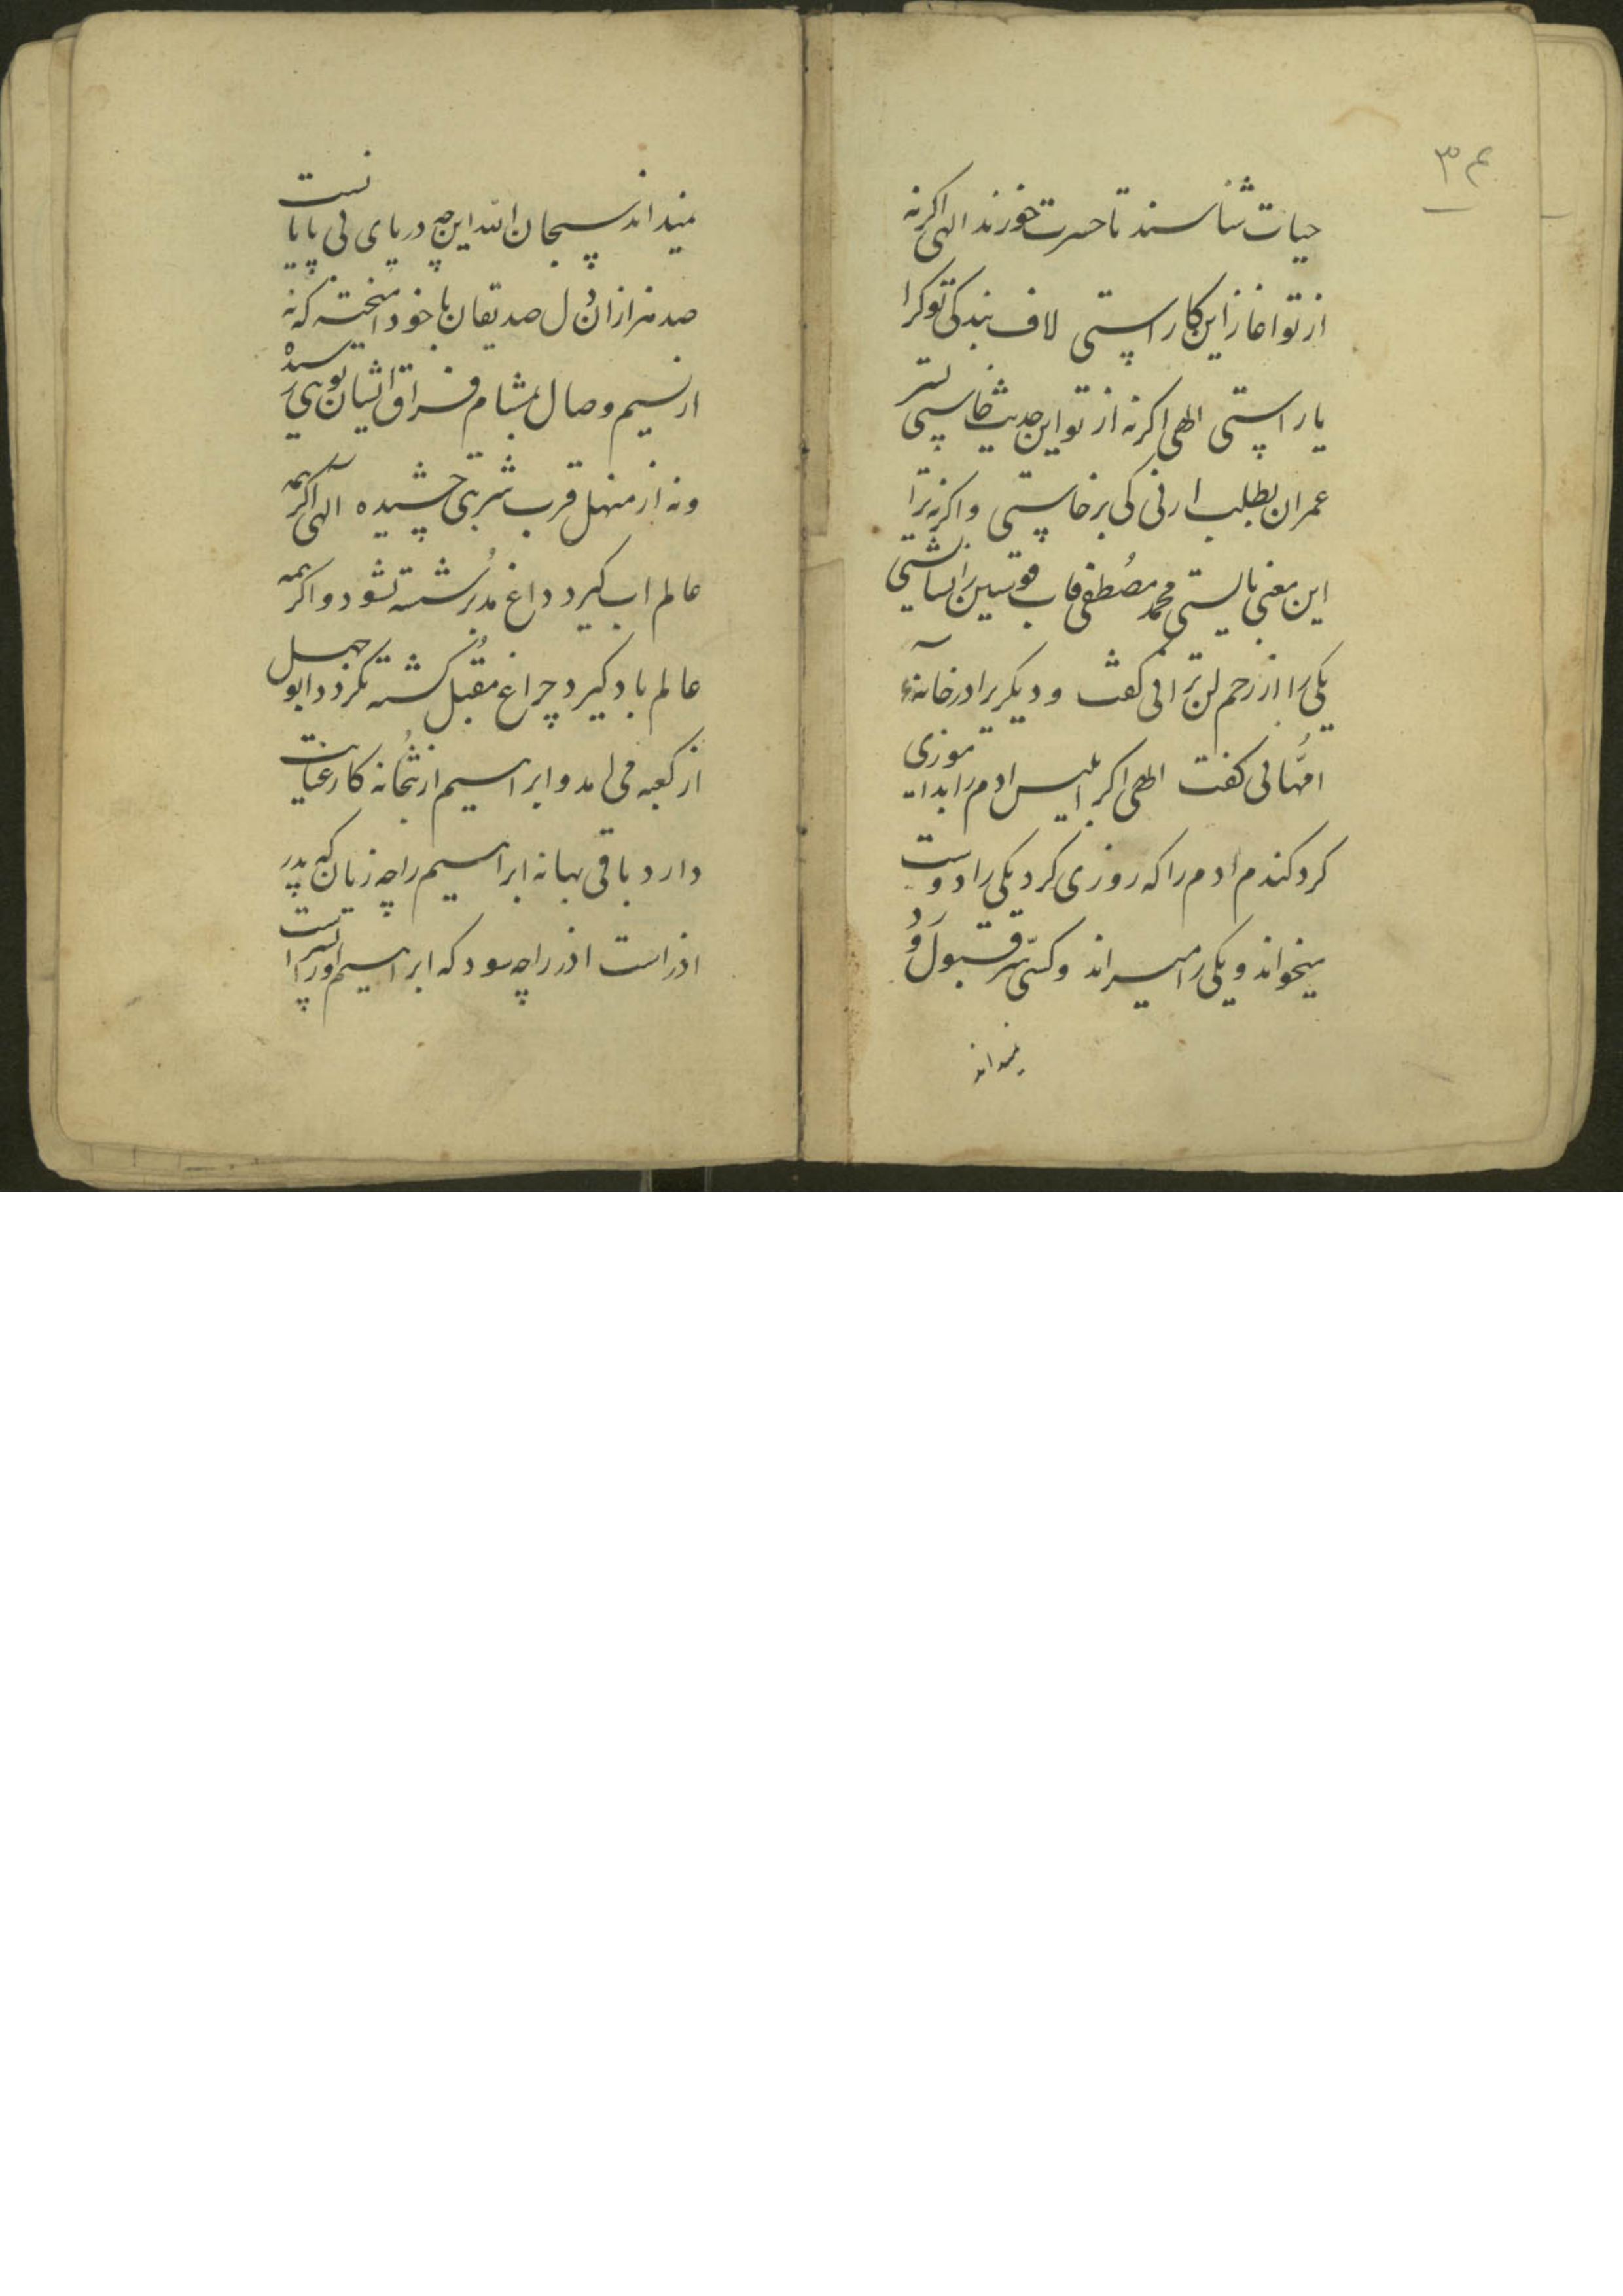 ۳۴
حیات شناسند تا حسرت خورند الهی اکرنه
از تو اغاز این کار استی لاف بندکی تو کرا
یاراستی الهی اکرنه از تو این حدیث خاستی پسر
عمران بطلب ارنی کی برخاستی و اکرنه ترا
این معنی بایستی محمد مصطفی قاب قوسین را نشایستی
یکی را از رحم لن ترانی کفت و دیکریرا در خانهٔ
امهانی کفت الهی اکر ابلیس ادم را بداموزی
کرد کندم ادم را که روزی کرد یکی را دوست
میخواند و یکی را میراند و کسی سر قبول و رد
نمیداند
نمیداند سبحان الله این چه دریای بی پایانست
صد هزاران دل صدیقان با خود امیخته که نه
از نسیم وصال بمشام فراق ایشان بویی رسیده
و نه از منهل قرب شربتی چشیده الهی اکر همه
عالم اب کیرد داغ مدبر شسته نشود و اکر همه
عالم باد کیرد چراغ مقبل کشته نکردد ابوجهل
از کعبه می امد و ابراهیم از بتخانه کار عنایت
دارد باقی بهانه ابراهیم را چه زیان که پدر
اذر است اذر را چه سود که ابراهیم او را پسر است